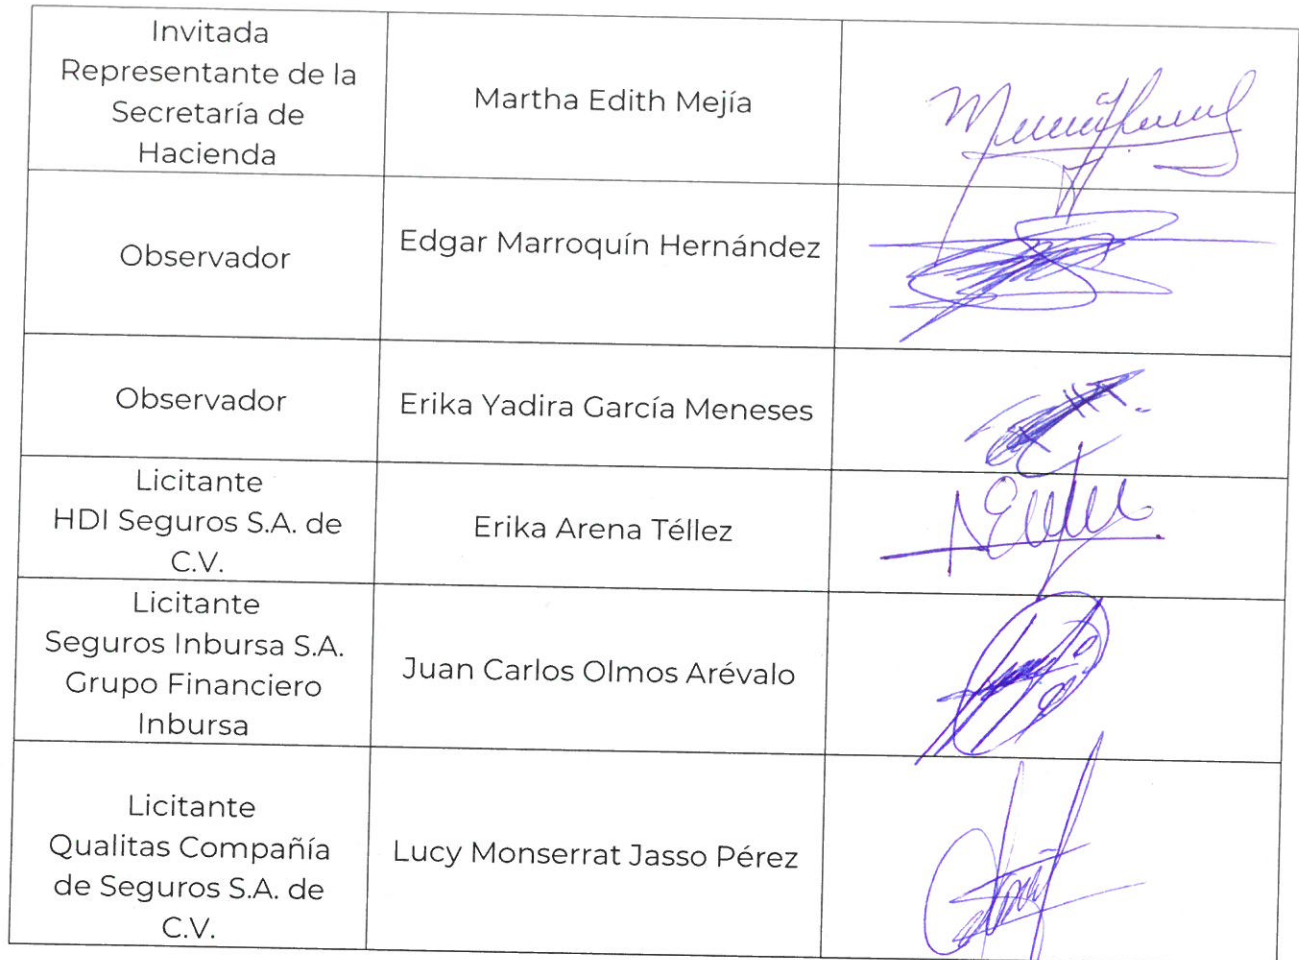 Invitada
Representante de la
Secretaría de
Hacienda
Martha Edith Mejía
Observador
Edgar Marroquín Hernández
Observador
Erika Yadira García Meneses
Licitante
HDI Seguros S.A. de
C.V.
Erika Arena Téllez
Licitante
Seguros Inbursa S.A.
Grupo Financiero
Inbursa
Juan Carlos Olmos Arévalo
Licitante
Qualitas Compañía
de Seguros S.A. de
C.V.
Lucy Monserrat Jasso Pérez